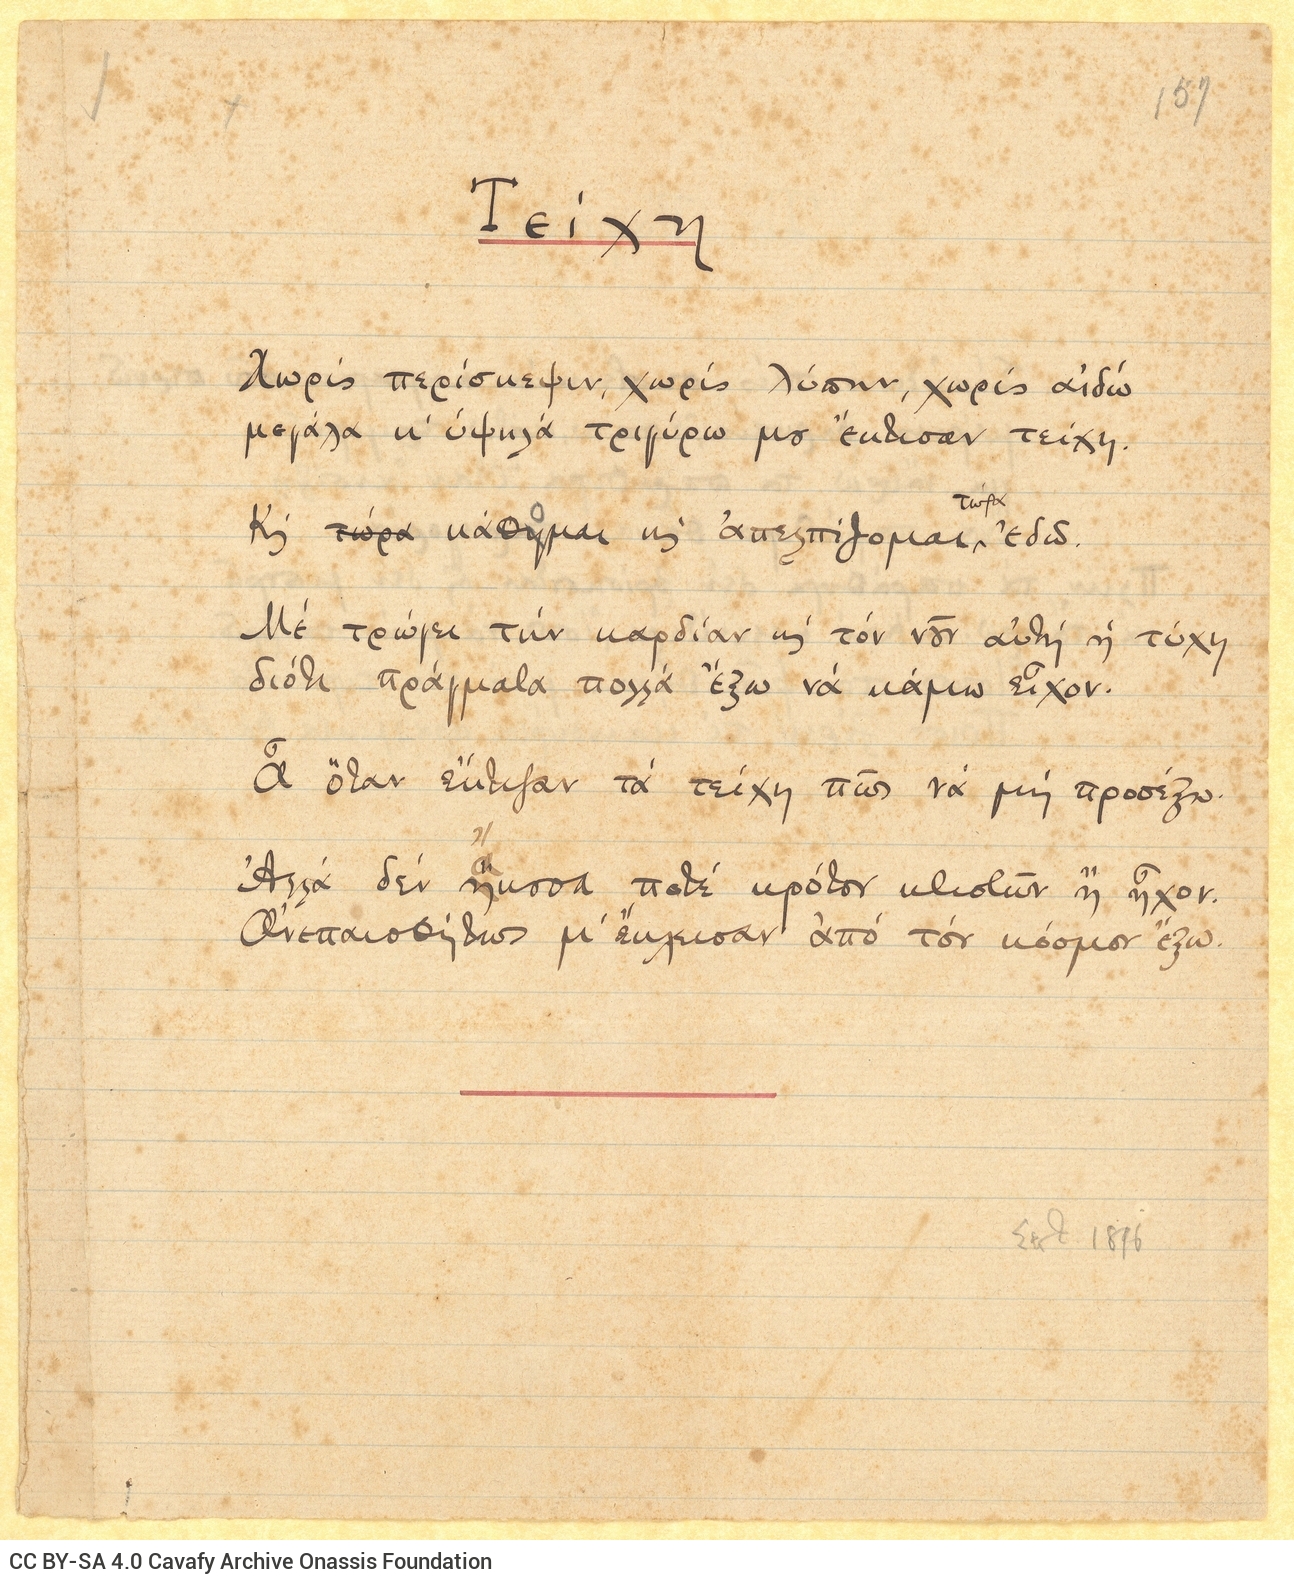 157
Τείχη
Χωρίς περίσκεψιν, χωρίς λύπην, χωρίς αἰδώ
μεγάλα κ' ὑψηλά τριγύρω μου ἔκτισαν τείχη.
τώρα
Καί τώρα κάθομαι καί ἀπελπίζομαι ἐδῶ.
Μέ τρώγει τήν καρδίαν καί τόν νοῦν αὐτή ἡ τύχη
διότι πράγματα πολλά ἔξω νά κάμω εἶχον.
Ἆ ὅταν ἔκτιζαν τά τείχη πῶς νά μή προσέξω.
Ἀλλά δέν ἤκουσα ποτέ κρότον κτιστῶν ἤ ἦχον.
Ἀνεπαισθήτως μ' ἔκλεισαν ἀπό τόν κόσμον ἔξω.
Σεπτ 1896
CC BY-SA 4.0 Cavafy Archive Onassis Foundation